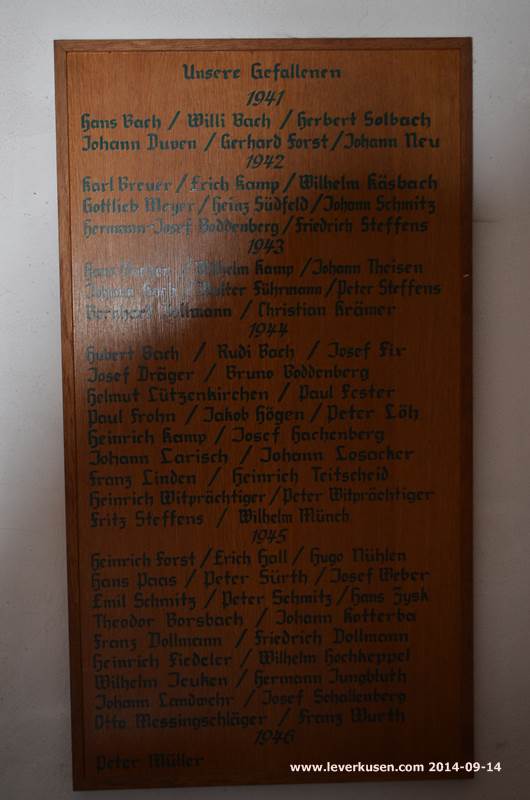 Unsere Gefallenen
1941
Hans Bach / Willi Bach / Herbert Solbach
Johann Duven / Gerhard Forst / Johann Neu
1942
Karl Breuer / Erich Kamp / Wilhelm Käsbach
Gottlieb Meyer / Heinz Südfeld / Johann Schmitz
Hermann-Josef Boddenberg / Friedrich Steffens
1943
Hans / Wilhelm Kamp / Johann Theisen
Johann Bach / Walter Führmann / Peter Steffens
Bernhard Dollmann / Christian Krämer
1944
Hubert Bach / Rudi Bach / Josef Fix
Josef Dräger / Bruno Boddenberg
Helmut Lützenkirchen / Paul Fester
Paul Frohn / Jakob Högen / Peter Löh
Heinrich Kamp / Josef Hachenberg
Johann Larisch / Johann Losacker
Franz Linden / Heinrich Teitscheid
Heinrich Witprächtiger / Peter Witprächtiger
Fritz Steffens / Wilhelm Münch
1945
Heinrich Forst / Erich Hall / Hugo Nühlen
Hans Paas / Peter Sürth / Josef Weber
Emil Schmitz / Peter Schmitz / Hans Zysk
Theodor Borsbach / Johann Kotterba
Franz Dollmann / Friedrich Dollmann
Heinrich Fiedeler / Wilhelm Hochkeppel
Wilhelm Jeuken / Hermann Jungbluth
Johann Landwehr / Josef Schallenberg
Otto Messingschläger / Franz Wurth
1946
Peter Müller
www.leverkusen.com 2014-09-14